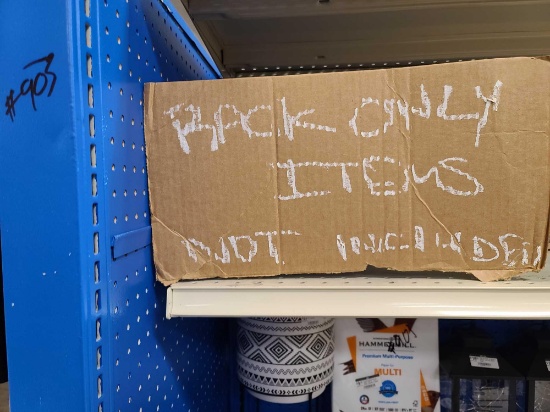 #903
RACK ONLY
ITEMS
NOT INCLUDED
HAMMERMILL
Premium Multi-Purpose
MULTI